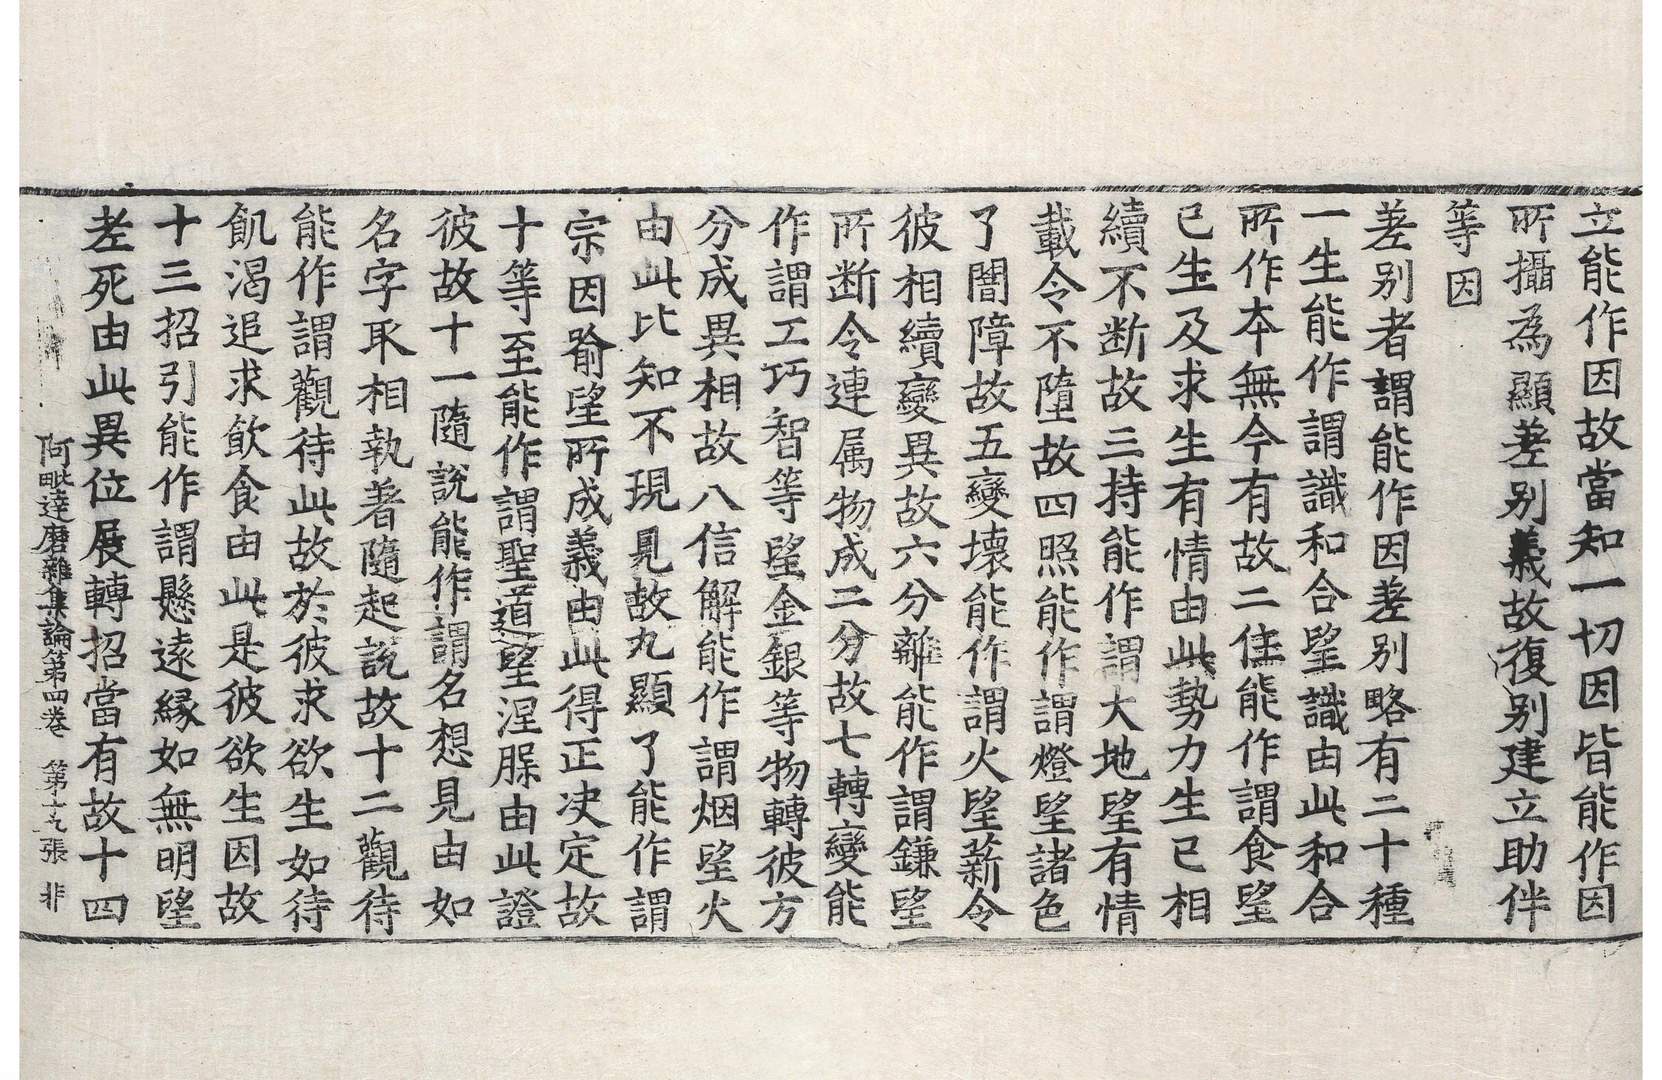 立能作因故當知一切因皆能作因
所攝為顯差别義故復别建立助伴
等因
差别者謂能作因差别略有二十種
一生能作謂識和合望識由此和合
所作本無今有故二住能作謂食望
已生及求生有情由此勢力生已相
續不断故三持能作謂大地望有情
載令不墮故四照能作謂燈望諸色
了闇障故五變壞能作謂火望薪令
彼相續變異故六分離能作謂鎌望
所断令連属物成二分故七轉變能
作謂工巧智等望金銀等物轉彼方
分成異相故八信解能作謂烟望火
由此比知不現見故九顯了能作謂
宗因喻望所成義由此得正决定故
十等至能作謂聖道望涅槃由此證
彼故十一隨說能作謂名想見由如
名字取相執著隨起說故十二觀待
能作謂觀待此故於彼求欲生如待
飢渴追求飲食由此是彼欲生因故
十三招引能作謂懸遠緣如無明望
老死由此異位展轉招當有故十四
阿毗達磨雜集論第四卷 第十九張 非